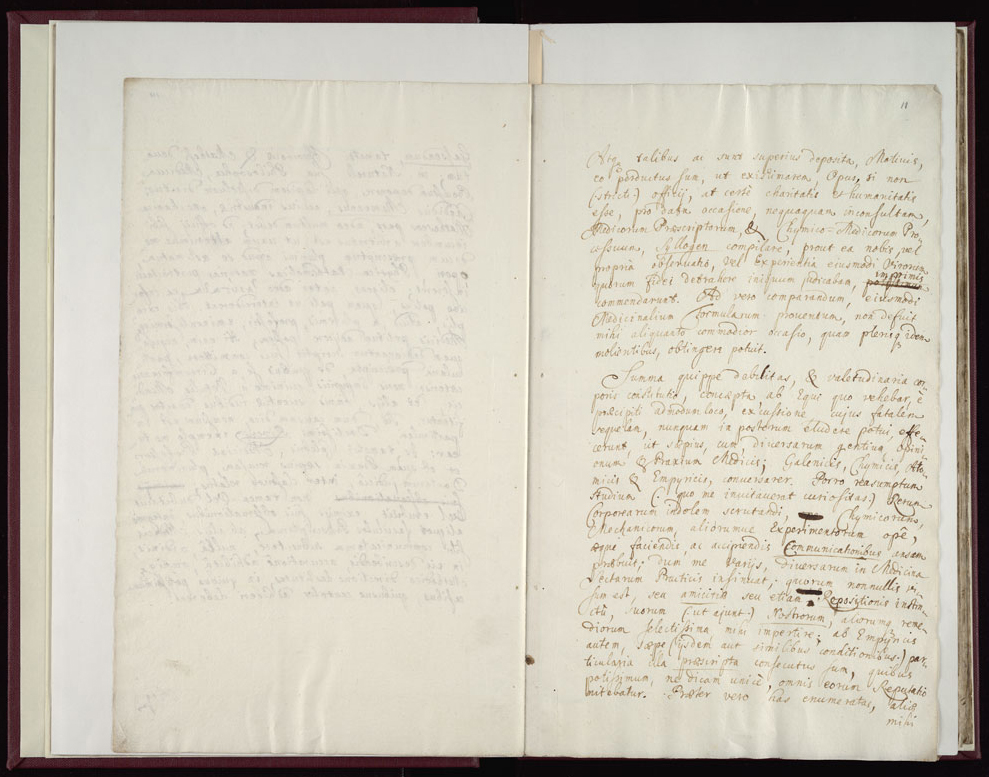 11
Atq talibus ac sunt superius deposita, Motivis,
eo perductus sum, ut existimarem, Opus, si non
(stricti) officij, at certè charitatis et humanitatis
esse, pro data occasione, nequaquam inconsultam,
Medicorum Præscriptorum, & Chymico-Medicorum Pro-
cessuum, Syllogen compilare; prout ea nobis, vel
propria observatio, vel Experientia eiusmodi Virorum
quorum fidei detrahere iniquum judicabam, inprimis
commendarunt. Ad vero comparandum, eiusmodi
Medicinalium Formularum proventum, non defuit
mihi aliquanto commodior occasio, quam plerisq idem
molientibus, obtingere potuit.
Summa quippe debilitas, & valetudinaria cor-
poris constitutio, concepta ab Equi quo vehebar, è
præcipiti admodum loco, excussione, cujus fatalem
sequelam, nunquam in posterum eludere potui, effe-
cerunt, ut sæpius, cum diversarum gentium, opini-
onum & Praxium Medicis; Galenicis, Chymicis, Ato-
micis & Empyricis, conversarer. Porro reasumptum
studium (quo me invitaverat curiositas) Rerum
Corporearum indolem scrutandi, Chymicorum,
Mechanicorum, aliorumve Experimentorum opê,
æque faciendis ac accipiendis Communicationibus ansam
præbuit; dum me Varijs, diversarum in Medicina
Sectarum Practicis insinuat; quorum nonnullis vi-
sum est, seu amicitiæ seu etiam Repositionis instin-
ctu, suorum (ut ajunt) Nostrorum, aliorumq reme-
diorum selectissima mihi impertire; ab Empÿricis
autem, sæpe (ijsdem aut similibus conditionibus) par-
ticularia illa præscripta consecutus sum, quibus
potissimum, ne dicam unicè, omnis eorum Reputatio
nitebatur. Præter vero has enumeratas, aliæ
mihi